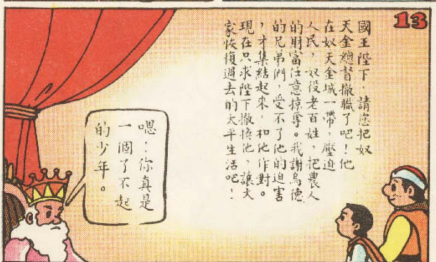 13
國王陛下，請您把奴
天金總督撤職了吧！他
在奴天金城一帶，壓迫
人民，奴役老百姓，把農人
的財富任意掠奪。我謝烏德
的兄弟們，受不了他的迫害
，才集結起來，和他作對。
現在只求陛下撤換他，讓大
家恢復過去的太平生活吧！
嗯！你真是
一個了不起
的少年。